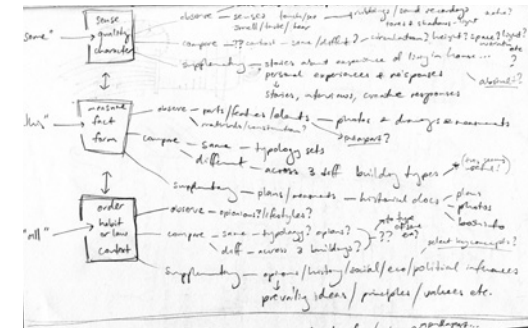 sense
quality
character
"some"
observe - senses touch/see
smell/taste/hear
rubbings/sound recordings
tones & shadows - light
compare - ?? context - same/different? - circulation? height? space? light?
materials
etc
?
supplementary - stories about experience of living in house...
personal experiences & responses
stories, interviews, creative responses
absent?
measure
fact
form
observe - parts/features/elements - photos & drawings & measurements
materials/construction?
compare - same - typology sets
different - across 3 diff building types
supplementary - plans/measurements - historical docs
plans
photos
books info
"all"
order
habit
or law
context
observe - opinions?/lifestyles?
compare - same - typology? opinions?
diff - across 3 buildings?
??
to type
of same
era?
select key concepts?
supplementary - opinions/history/social/eco/political influences
prevailing ideas / principles / values etc.